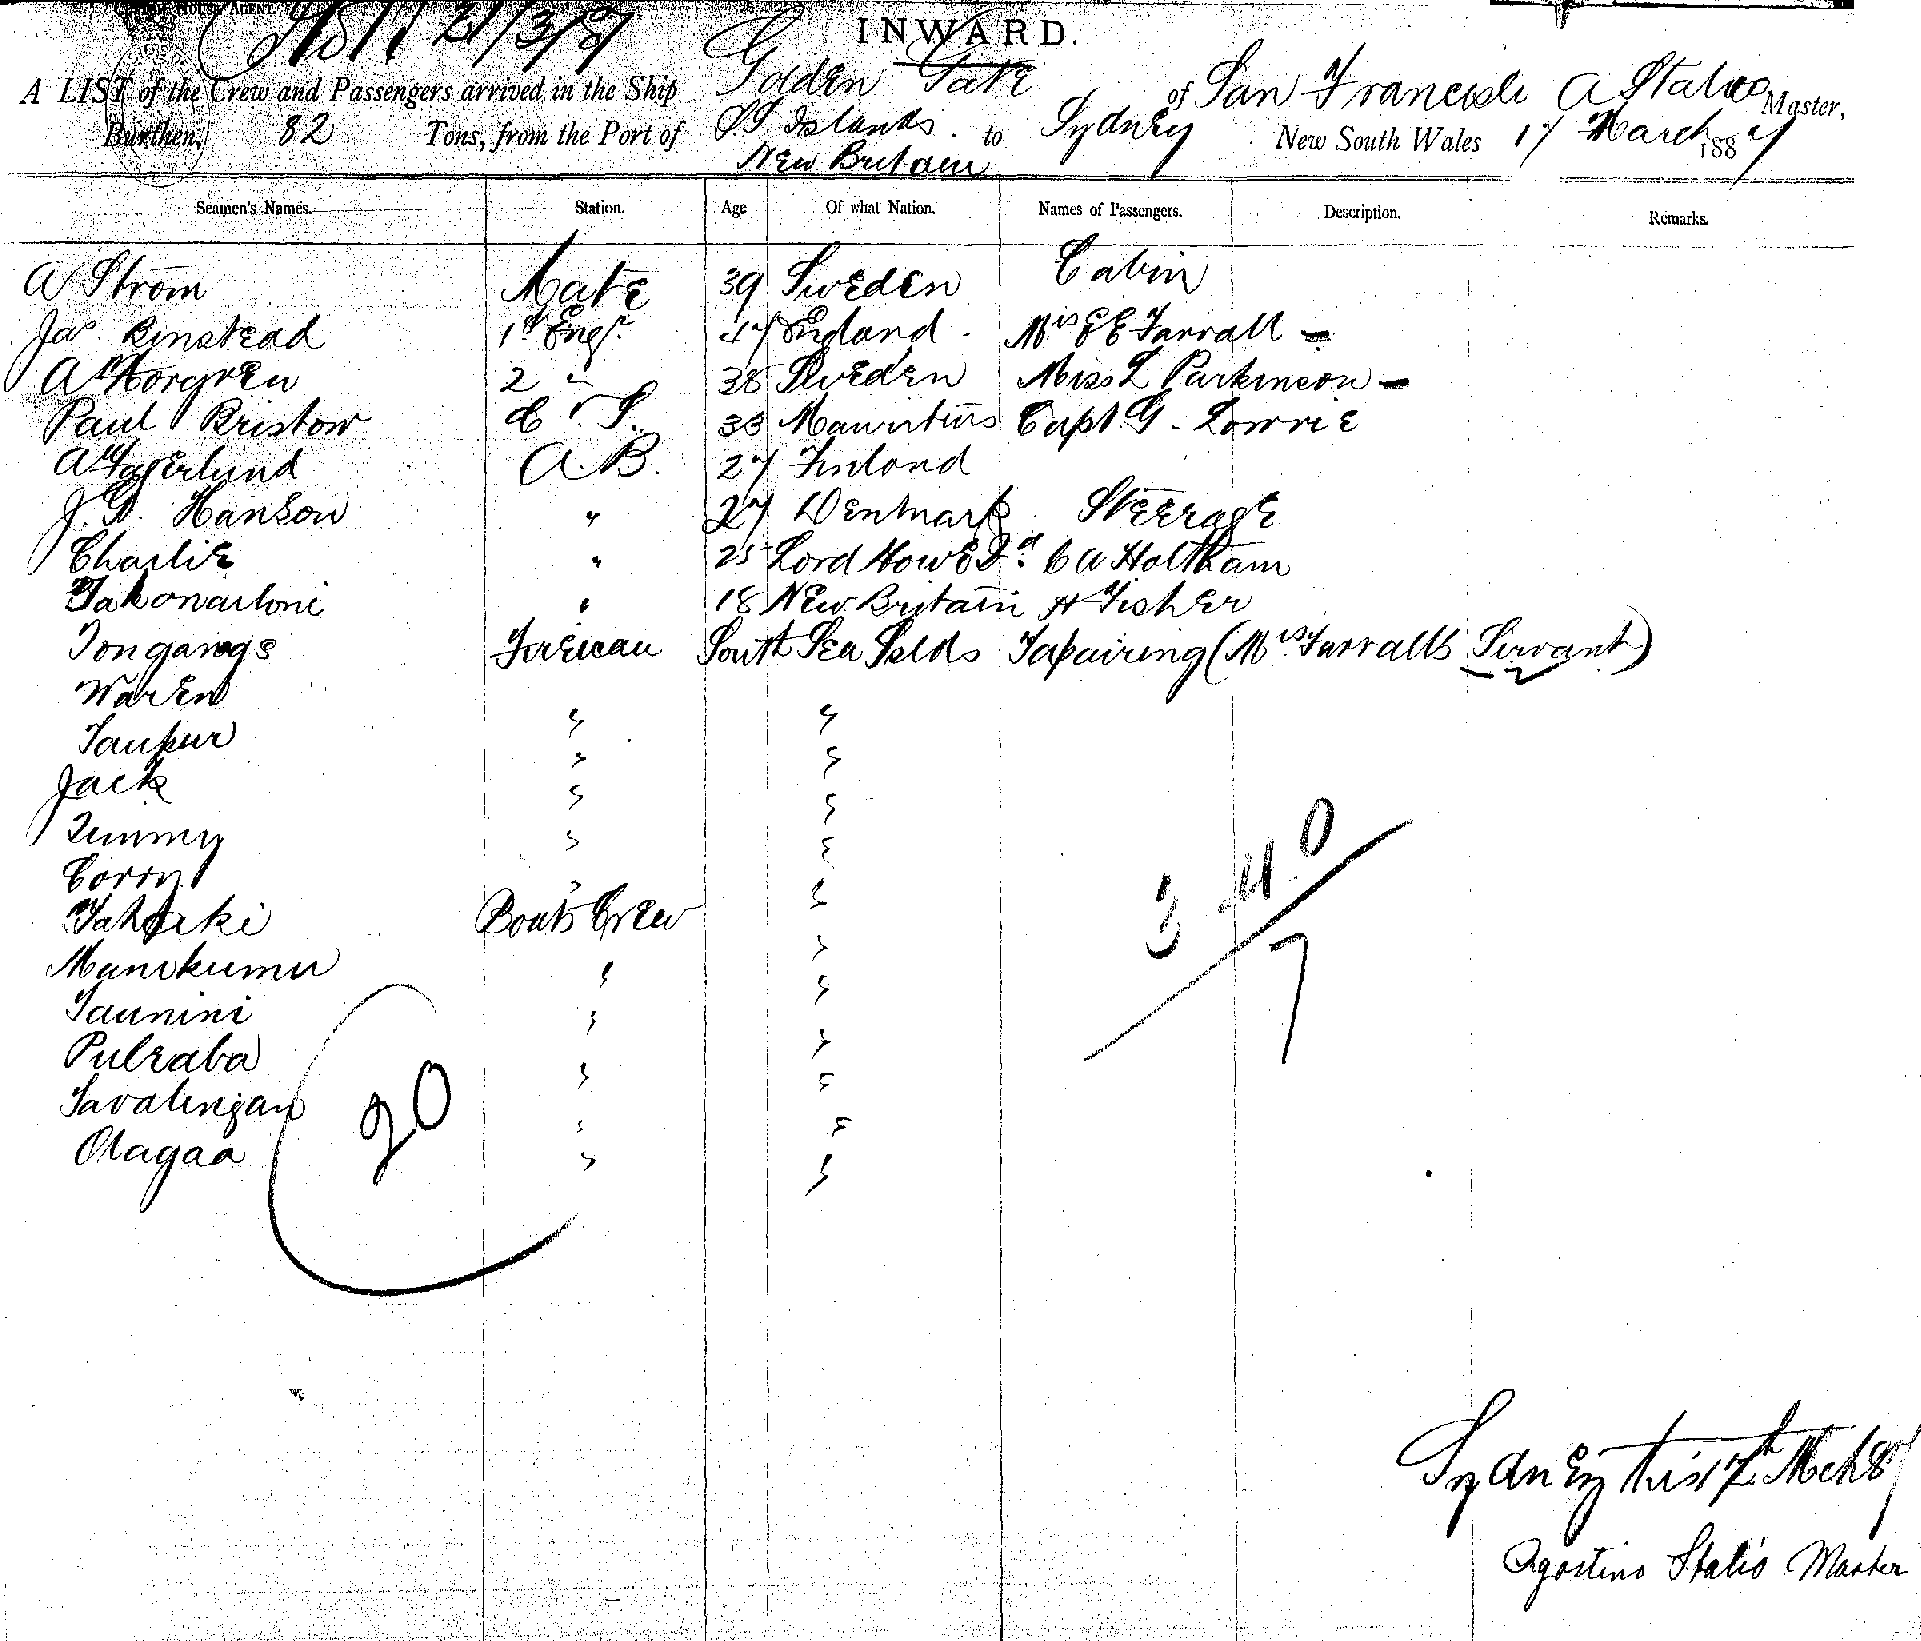 INWARD.
A LIST of the Crew and Passengers arrived in the Ship Golden Gate of San Francisco A Stalio Master,
Burthen, 82 Tons, from the Port of SS Islands. to Sydney New South Wales 17 March 1887
New Britain
Seamen's Names. Station. Age Of what Nation. Names of Passengers. Description. Remarks.
A Strom Mate 39 Sweden Cabin
Jas Kinstead 1st Engr. 47 England. Mrs E E Farrall -
A Norgren 2 " 38 Sweden Miss L Parkinson -
Paul Bristow C & S. 33 Mauritius Capt. G. Lowrie
A Fagerlund A.B. 27 Finland
J. G. Hanson " 27 Denmark Steerage
Charlie " 25 Lord Howe Id. C A Holtham
Takonailoni " 18 New Britain H Fisher
Tongangs Fireman South Sea Islds Tapairing (Mrs Farralls Servant)
Waren " "
Taupur " "
Jack " "
Jimmy " "
Corry " "
Tahuki Boats Crew "
Manikumu " "
Taunini " "
Pulraba " "
Tavalingan " "
Olagaa " "
3 4 0
7
20
Sydney this 17th Mch 87
Agostino Stalio Master